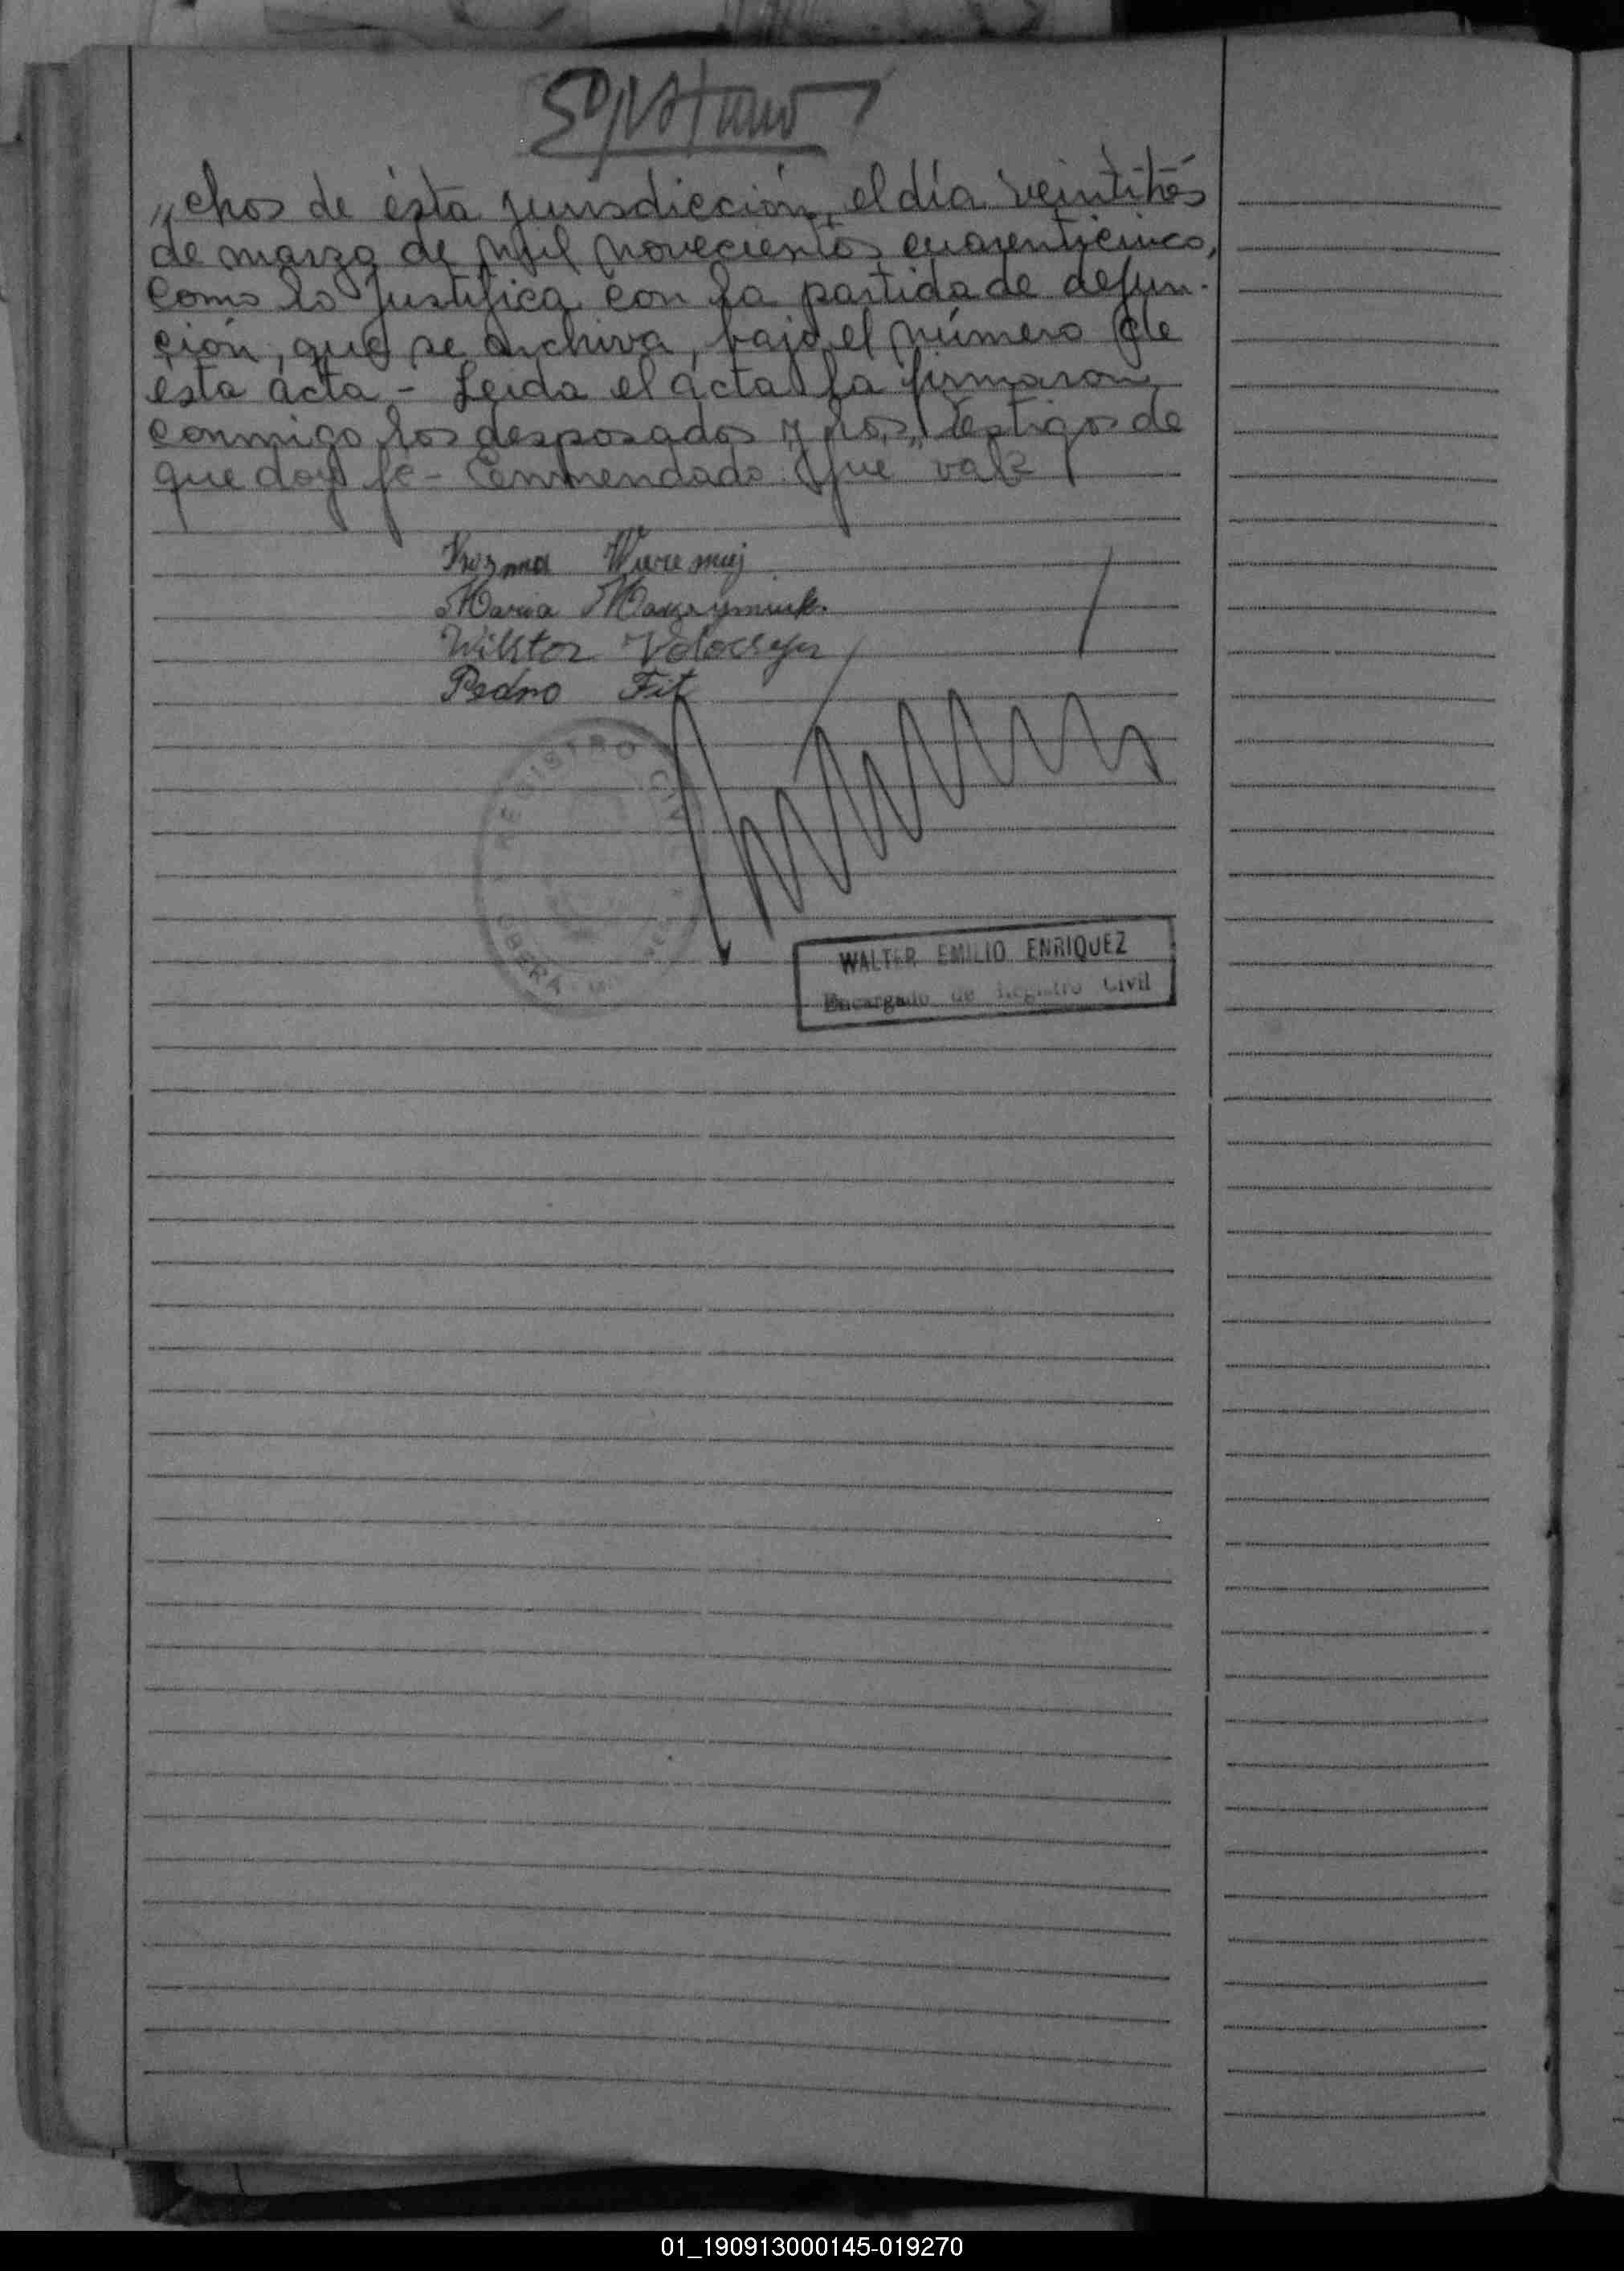 „chos de ésta jurisdicción, el día veintitrés
de marzo de mil novecientos cuarenticinco,
como lo justifica con la partida de defun-
ción, que se archiva, bajo el número de
ésta ácta - Leida el ácta la firmaron
conmigo los desposados y los testigos de
que doy fé - Enmendado: "fue" vale
Kuzma
Maria
Wiktor
Pedro Fit
REGISTRO CIVIL
OBERÁ
WALTER EMILIO ENRIQUEZ
Encargado de Registro Civil
01_190913000145-019270